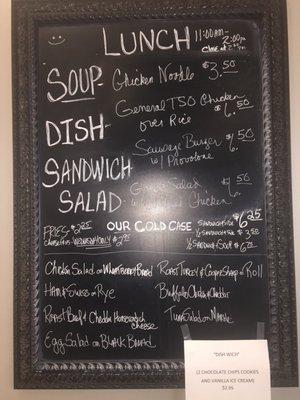 LUNCH 11:00AM - 2:00PM
SOUP - Chicken Noodle $3.50
DISH - General TSO Chicken
over Rice $6.50
SANDWICH Sausage Burger
w/ Provolone $6.50
SALAD - Salad
w/ Chicken $6.50
FRIES $2.25
WEDNESDAY ONLY $2.95
OUR COLD CASE
SANDWICH $6.25
½ SANDWICH $3.50
½ SANDWICH SOUP $6.75
Chicken Salad on Wheatberry Bread
Ham & Swiss on Rye
Roast Beef & Cheddar Horseradish
cheese
Egg Salad on Black Bread
Roast Turkey & Cooper Sharp on Roll
Buffalo Chicken & Cheddar
Tuna Salad on
"DISH WICH"
(2 CHOCOLATE CHIPS COOKIES
AND VANILLA ICE CREAM)
$2.95